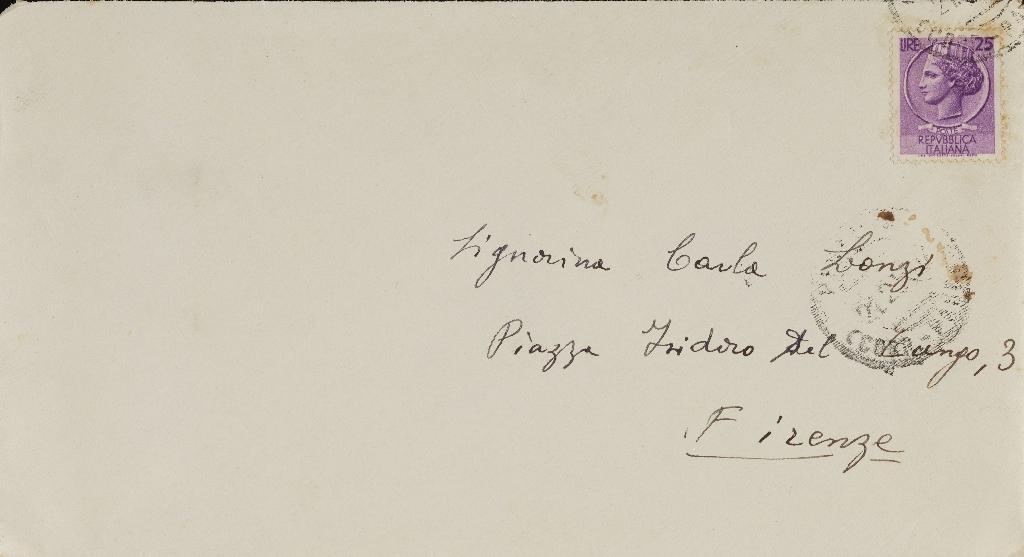 LIRE 25
POSTE
REPVBBLICA
ITALIANA
Signorina Carla Lonzi
Piazza Isidoro Del Lungo, 3
Firenze